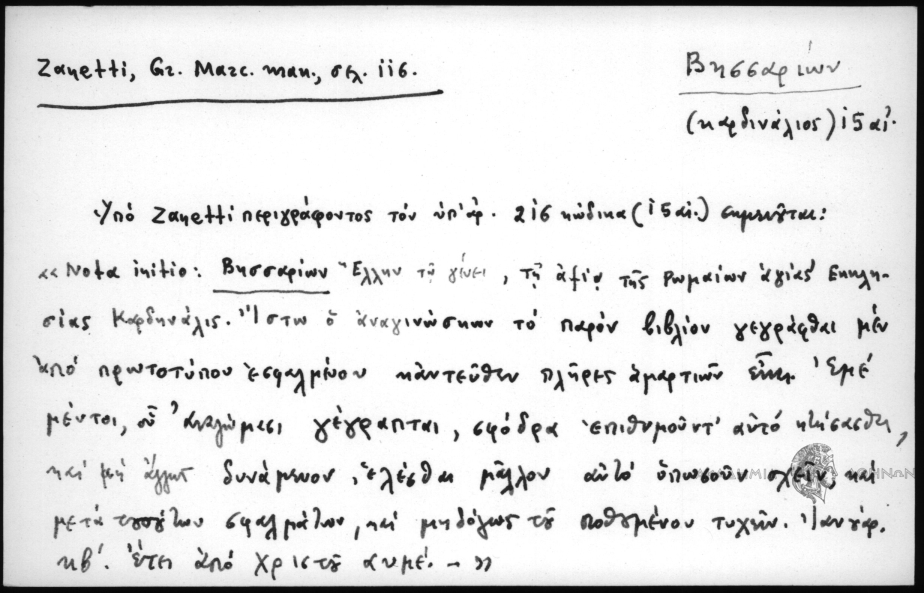 Zanetti, Gr. Marc. man., σελ. 116.
Βησσαρίων
(καρδινάλιος) 15 αἰ.
Ὑπό Zanetti περιγράφοντος τόν ὑπ' ἀρ. 216 κώδικα (15 αἰ.) σημειοῦται:
«Nota initio: Βησσαρίων Ἕλλην τῷ γένει, τῇ ἀξίᾳ τῆς Ρωμαίων ἁγίας Ἐκκλη-
σίας Καρδηνάλις. Ἴστω ὁ ἀναγινώσκων τό παρόν βιβλίον γεγράφθαι μέν
ἀπό πρωτοτύπου ἐσφαλμένου κἀντεῦθεν πλῆρες ἁμαρτιῶν εἶναι. Ἐμέ
μέντοι, οὗ ἀναλώμασι γέγραπται, σφόδρα ἐπιθυμοῦντ' αὐτό κτήσασθαι,
καί μή ἄλλως δυνάμενον, ἑλέσθαι μᾶλλον αὐτό ὁπωσοῦν σχεῖν καί
μετά τοσούτων σφαλμάτων, καί μηδόλως τοῦ ποθουμένου τυχεῖν. Ἰανουαρ.
κβ'. ἔτει ἀπό Χριστοῦ αυμέ. – »
ΑΘΗΝΩΝ